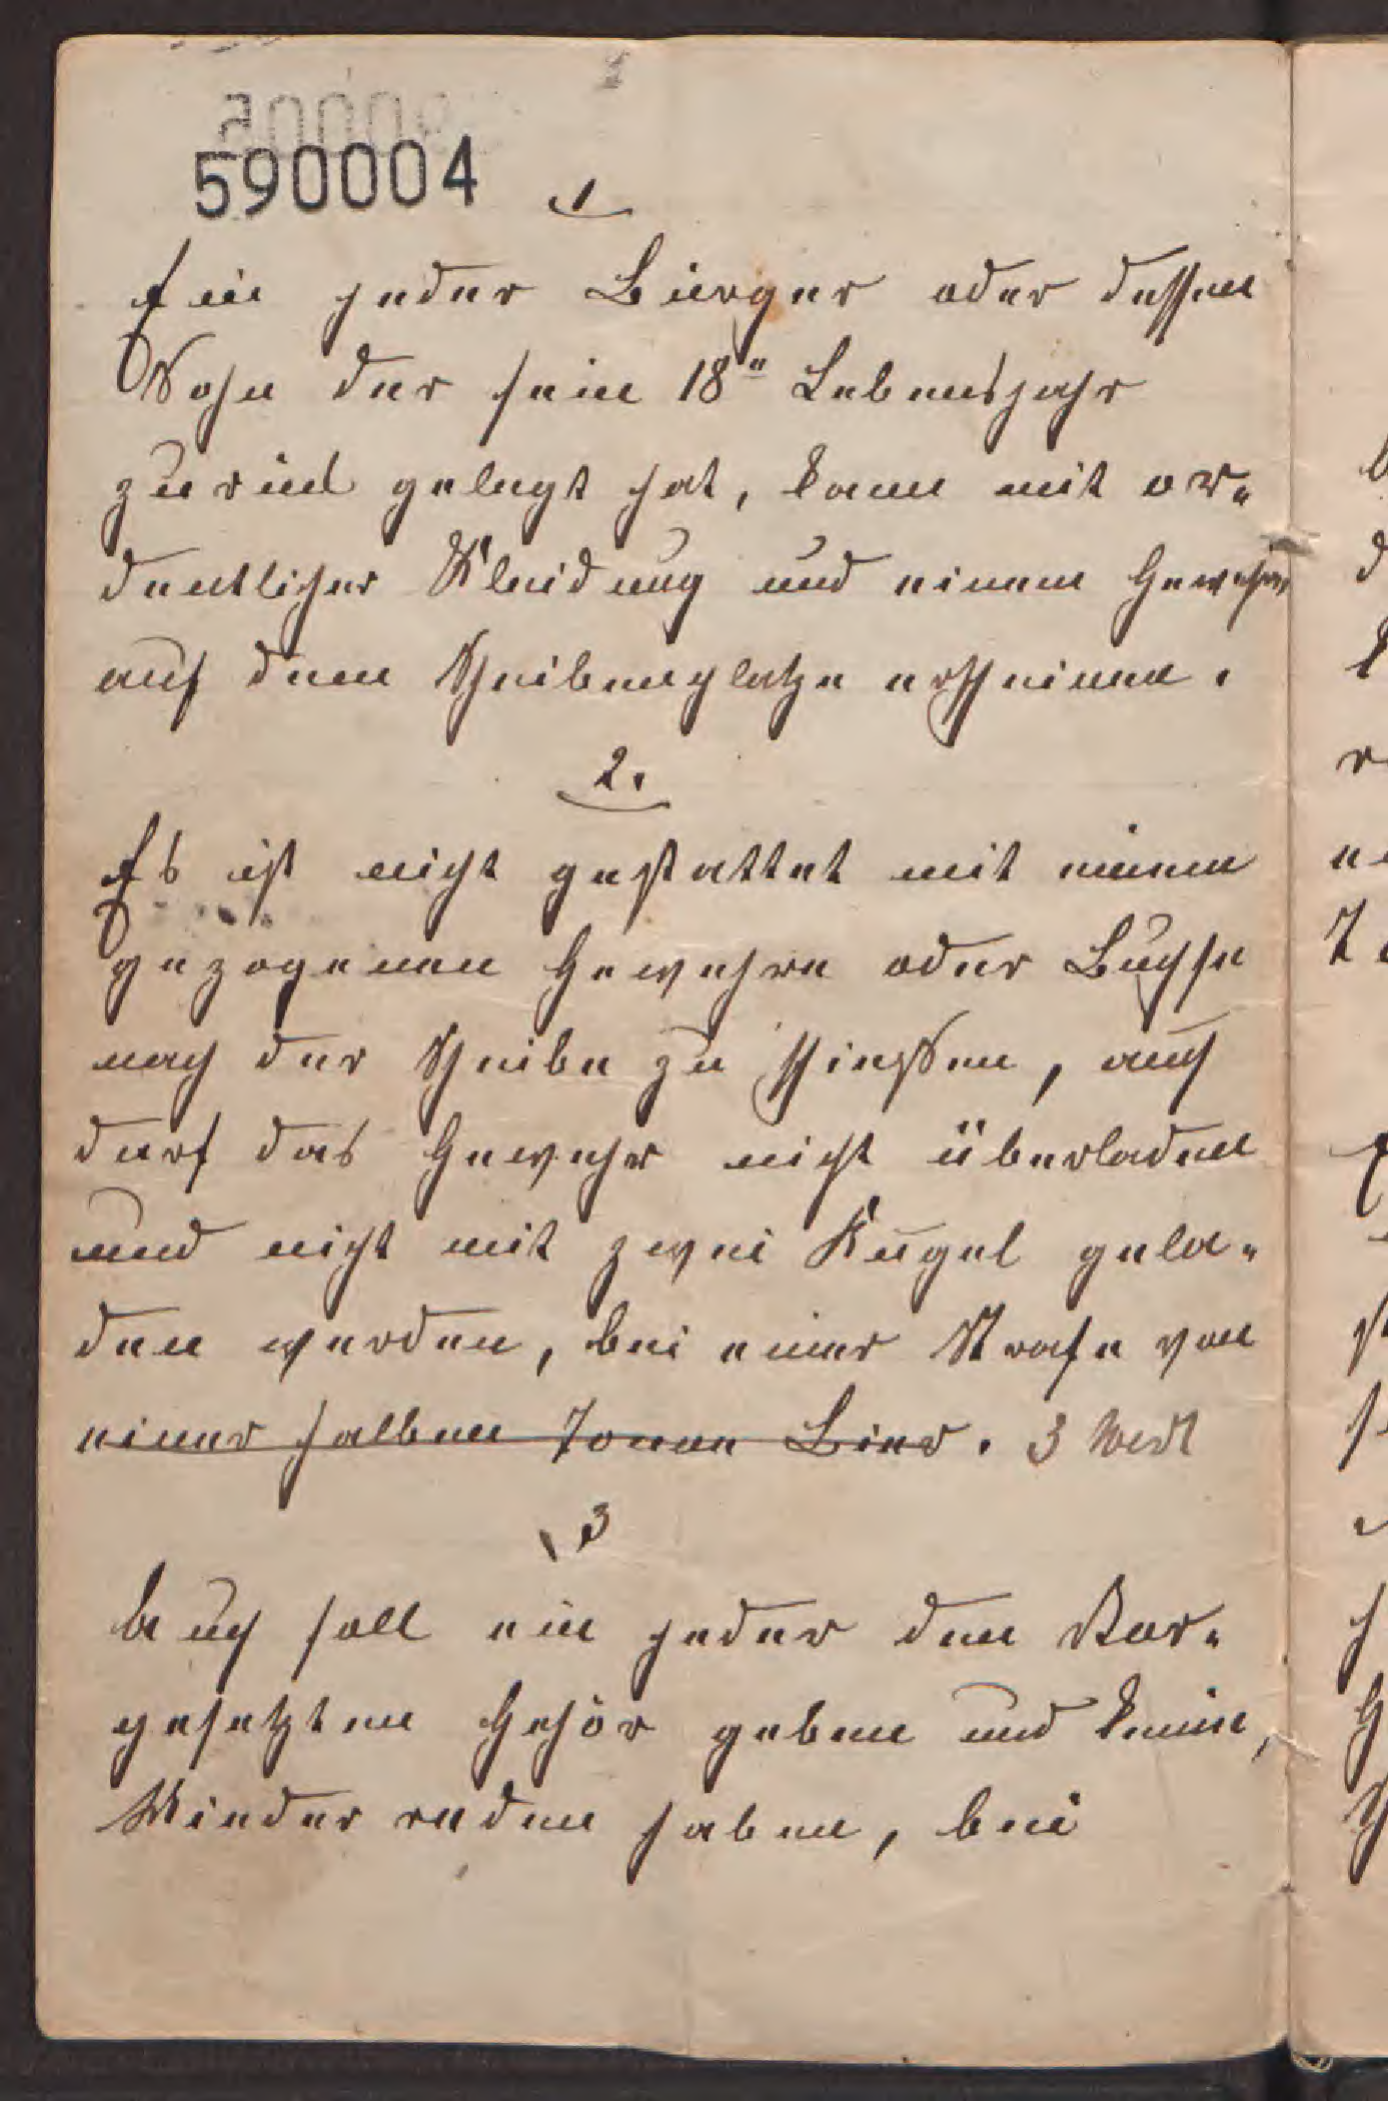 590004
1
Ein jeder Bürger oder dessen
Sohn der sein 18n Lebensjahr
zurück gelegt hat, kann mit or-
dentlicher Kleidung und einem Gewehre
auf dem Scheibenplatze erscheinen.
2.
Es ist nicht gestattet mit einem
gezogenen Gewehre oder Buchse
nach der Scheibe zu schießen, auch
darf das Gewehr nicht überladen
und nicht mit zwei Kugel gela-
den werden, bei einer Strafe von
einer halben Tonne Bier. 3
3
Auch soll ein jeder dem Vor-
gesetzten Gehör geben und keine,
Wieder reden haben, bei